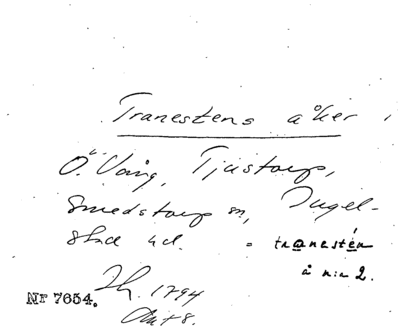 Tranestens åker
Ö. Vång, Tjustorp,
Smedstorp sn, Ingel-
stad hd. = tranestén
å n:a 2.
Nr 7654.
Lh. 1794
Akt 8.